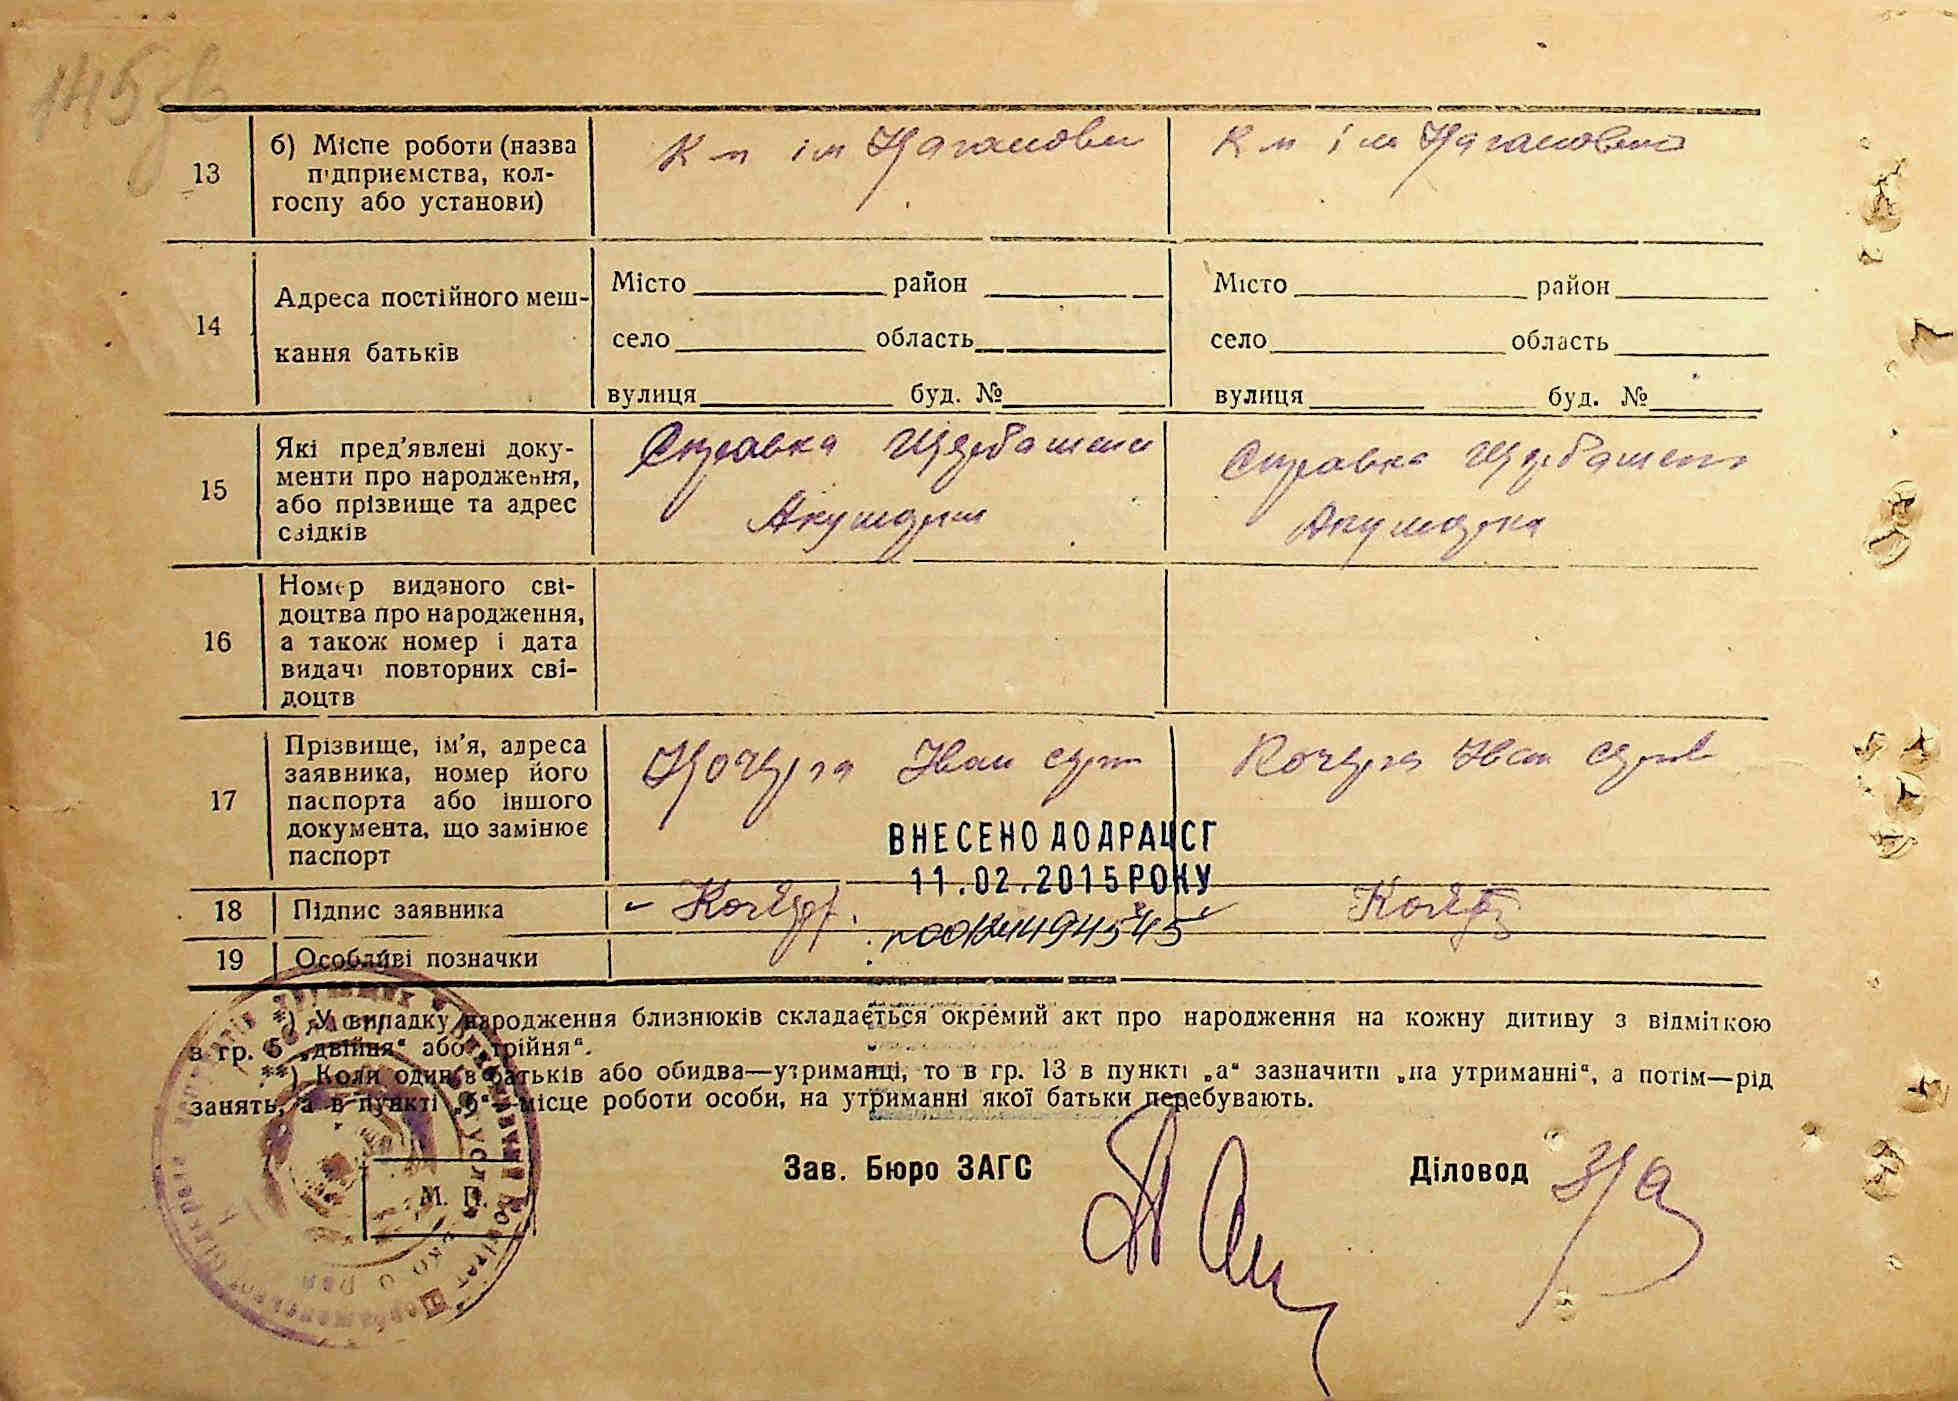 145зв
13
б) Місце роботи (назва
підприємства, кол-
госпу або установи)
К-п ім Кагановича
К-п ім Кагановича
14
Адреса постійного меш-
кання батьків
Місто район
село область
вулиця буд. №
Місто район
село область
вулиця буд. №
15
Які пред'явлені доку-
менти про народження,
або прізвище та адрес
свідків
Справка
Акушерки
Справка
Акушерка
16
Номер виданого сві-
доцтва про народження,
а також номер і дата
видачі повторних сві-
доцтв
17
Прізвище, ім'я, адреса
заявника, номер його
паспорта або іншого
документа, що замінює
паспорт
Кочерга Іван
Кочерга Іван
ВНЕСЕНО ДО ДРАЦСГ
11.02.2015 РОКУ
18
Підпис заявника
19
Особливі позначки
*) У випадку народження близнюків складається окремий акт про народження на кожну дитину з відміткою
в гр. 5 „двійня“ або „трійня“.
**) Коли один з батьків або обидва—утриманці, то в гр. 13 в пункті „а“ зазначити „на утриманні“, а потім—рід
занять, а в пункті „б“—місце роботи особи, на утриманні якої батьки перебувають.
М. П.
Зав. Бюро ЗАГС
Діловод